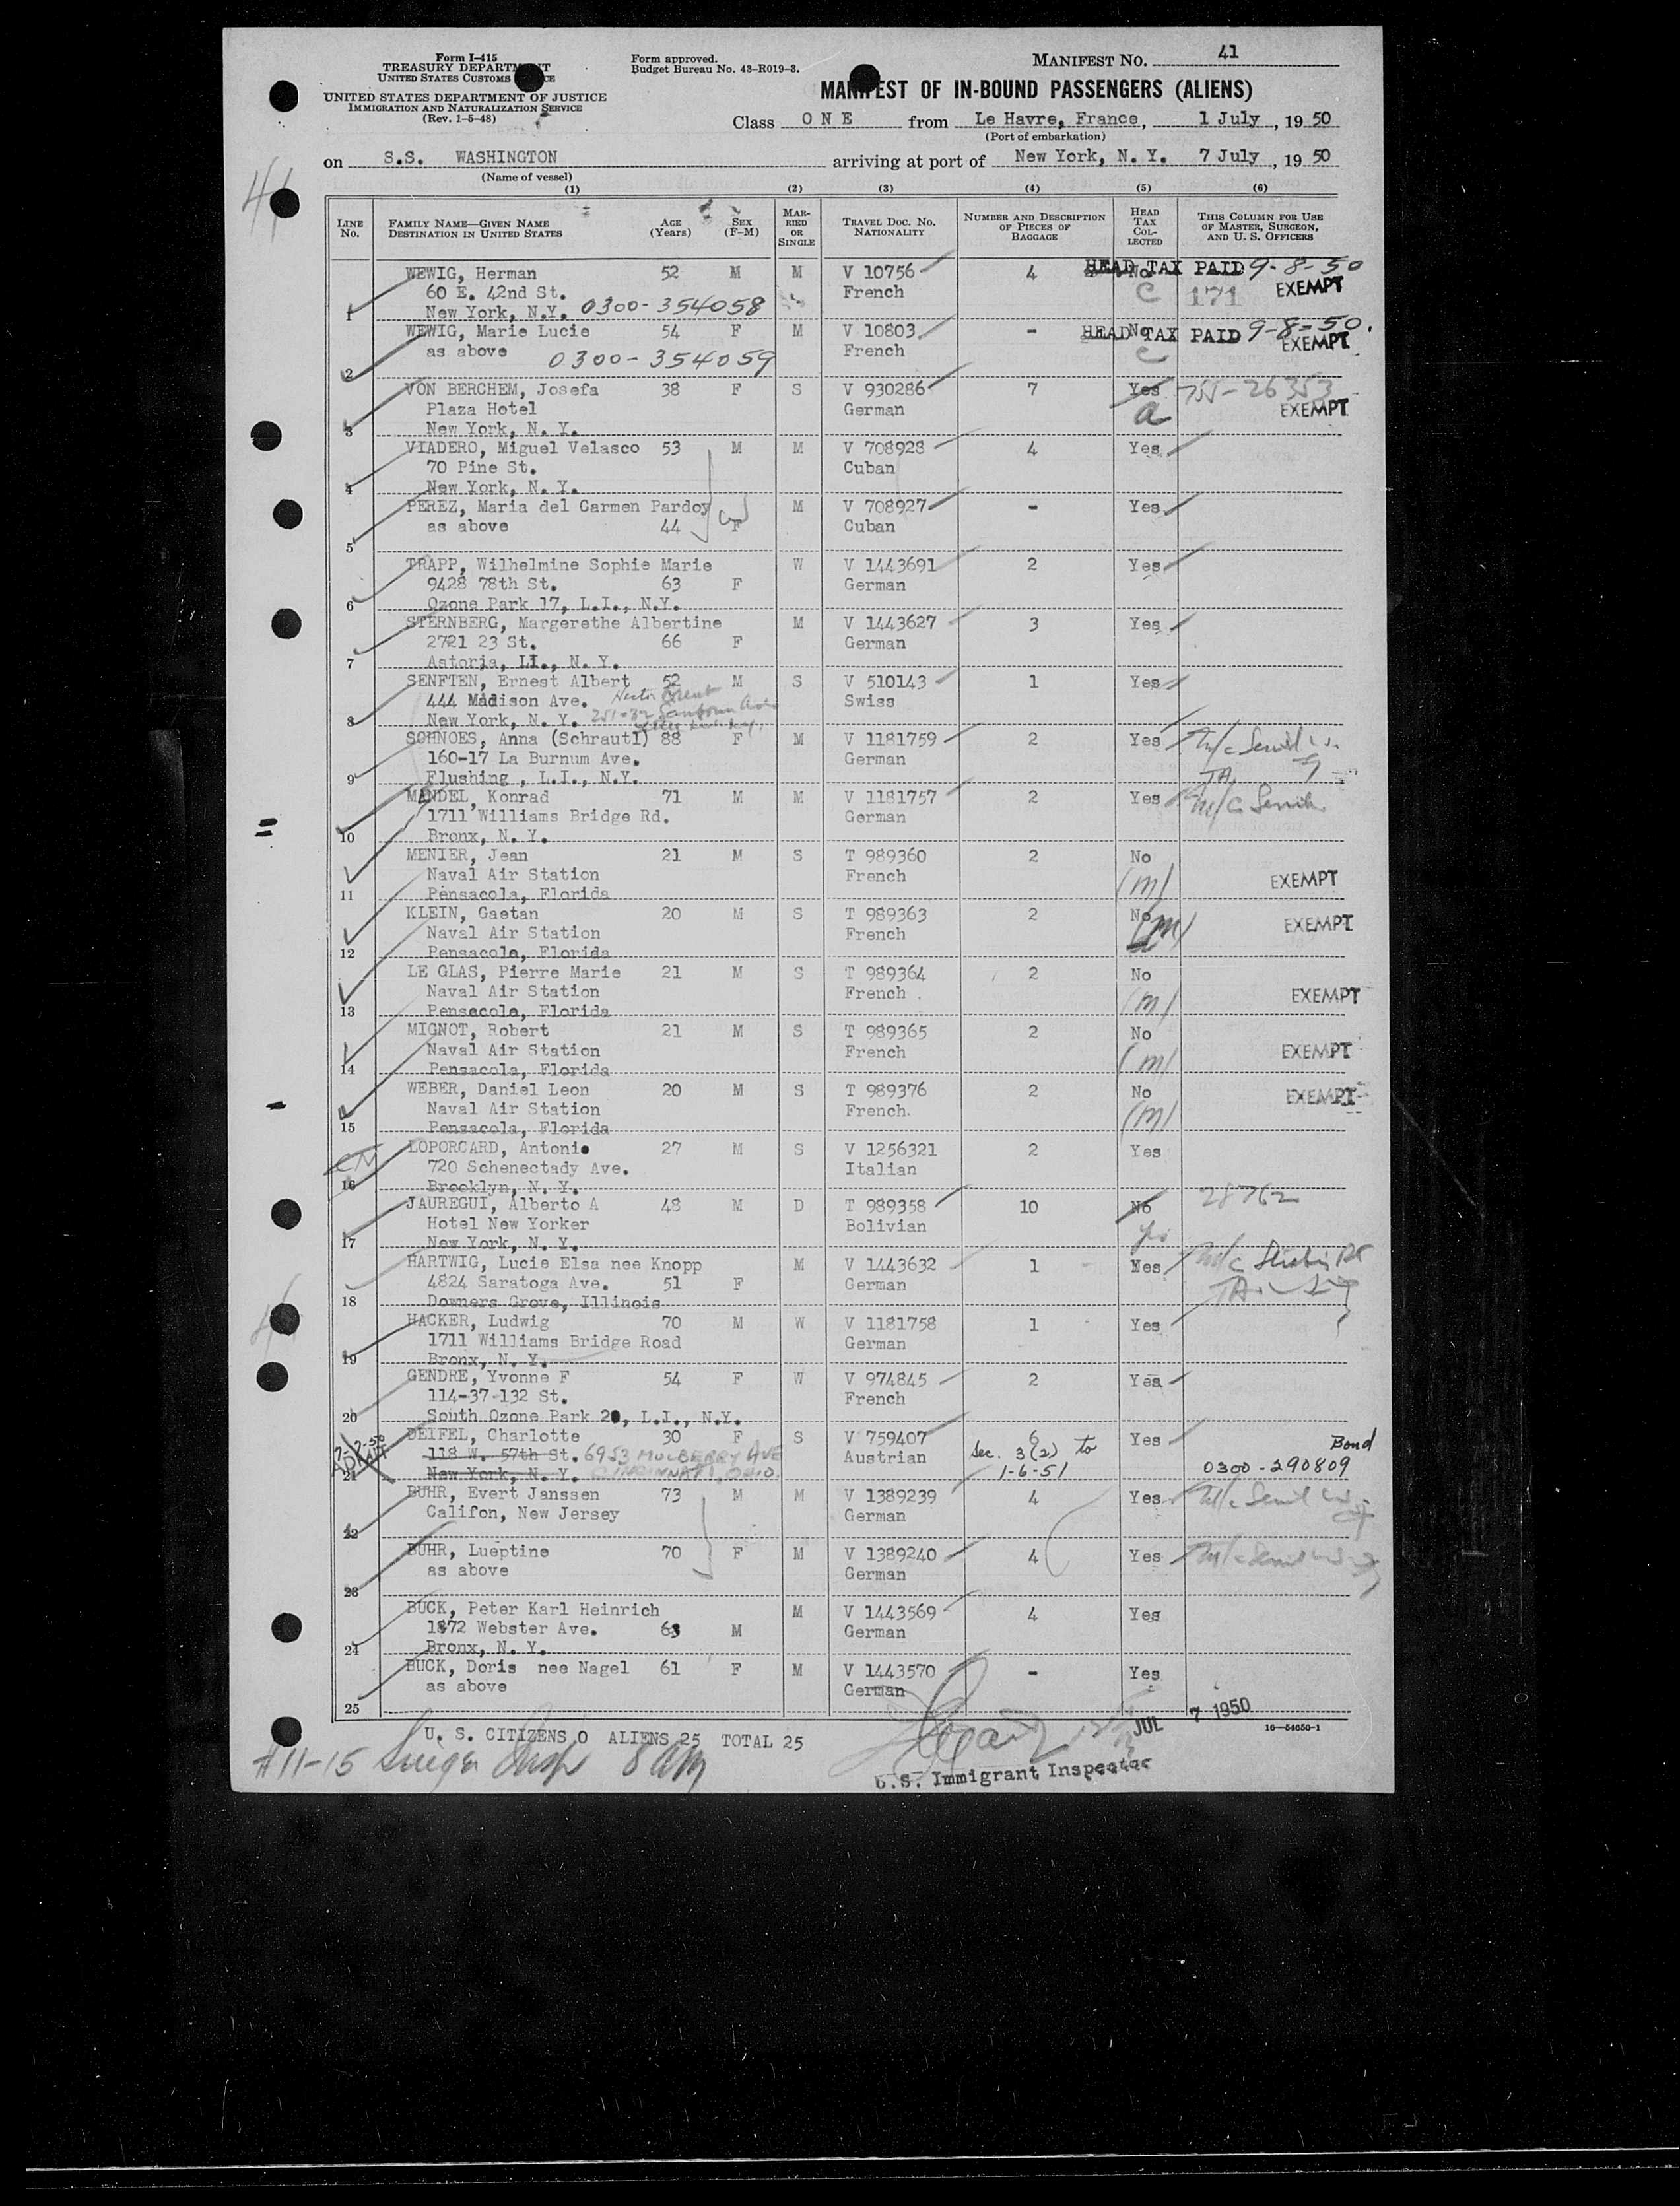 Form I-415
TREASURY DEPARTMENT
UNITED STATES CUSTOMS
UNITED STATES DEPARTMENT OF JUSTICE
IMMIGRATION AND NATURALIZATION SERVICE
(Rev. 1-5-48)
Form approved.
Budget Bureau No. 43-R019-3.
MANIFEST NO. 41
MANIFEST OF IN-BOUND PASSENGERS (ALIENS)
Class ONE from Le Havre, France, 1 July, 1950
(Port of embarkation)
on S.S. WASHINGTON arriving at port of New York, N. Y. 7 July, 1950
(Name of vessel)
(1) (2) (3) (4) (5) (6)
LINE NO. FAMILY NAME—GIVEN NAME DESTINATION IN UNITED STATES AGE (Years) SEX (F-M) MARRIED OR SINGLE TRAVEL DOC. NO. NATIONALITY NUMBER AND DESCRIPTION OF PIECES OF BAGGAGE HEAD TAX COLLECTED THIS COLUMN FOR USE OF MASTER, SURGEON, AND U. S. OFFICERS
WEWIG, Herman 52 M M V 10756 4 No HEAD TAX PAID 9-8-50
60 E. 42nd St. French C 171 EXEMPT
1 New York, N.Y. 0300-354058
WEWIG, Marie Lucie 54 F M V 10803 - No HEAD TAX PAID 9-8-50.
as above 0300-354059 French C EXEMPT
2
VON BERCHEM, Josefa 38 F S V 930286 7 Yes 755-26353
Plaza Hotel German a EXEMPT
3 New York, N. Y.
VIADERO, Miguel Velasco 53 M M V 708928 4 Yes
70 Pine St. Cuban
4 New York, N. Y.
PEREZ, Maria del Carmen Pardoy M V 708927 - Yes
as above 44 F Cuban
5
TRAPP, Wilhelmine Sophie Marie W V 1443691 2 Yes
9428 78th St. 63 F German
6 Ozone Park 17, L.I., N.Y.
STERNBERG, Margerethe Albertine M V 1443627 3 Yes
2721 23 St. 66 F German
7 Astoria, LI., N. Y.
SENFTEN, Ernest Albert 52 M S V 510143 1 Yes
444 Madison Ave. Swiss
8 New York, N. Y.
SCHNOES, Anna (Schrautl) 88 F M V 1181759 2 Yes
160-17 La Burnum Ave. German
9 Flushing, L.I., N.Y.
MANDEL, Konrad 71 M M V 1181757 2 Yes
1711 Williams Bridge Rd. German
10 Bronx, N. Y.
MENIER, Jean 21 M S T 989360 2 No
Naval Air Station French (m) EXEMPT
11 Pensacola, Florida
KLEIN, Gaetan 20 M S T 989363 2 No
Naval Air Station French (m) EXEMPT
12 Pensacola, Florida
LE GLAS, Pierre Marie 21 M S T 989364 2 No
Naval Air Station French (m) EXEMPT
13 Pensacola, Florida
MIGNOT, Robert 21 M S T 989365 2 No
Naval Air Station French (m) EXEMPT
14 Pensacola, Florida
WEBER, Daniel Leon 20 M S T 989376 2 No EXEMPT
Naval Air Station French (m)
15 Pensacola, Florida
LOPORCARD, Antonio 27 M S V 1256321 2 Yes
720 Schenectady Ave. Italian
16 Brooklyn, N. Y.
JAUREGUI, Alberto A 48 M D T 989358 10 No 28762
Hotel New Yorker Bolivian yes
17 New York, N. Y.
HARTWIG, Lucie Elsa nee Knopp M V 1443632 1 Yes
4824 Saratoga Ave. 51 F German
18 Downers Grove, Illinois
HACKER, Ludwig 70 M W V 1181758 1 Yes
1711 Williams Bridge Road German
19 Bronx, N. Y.
GENDRE, Yvonne F 54 F W V 974845 2 Yes
114-37-132 St. French
20 South Ozone Park 20, L.I., N.Y.
DEIFEL, Charlotte 30 F S V 759407 6 Yes Bond
118 W. 57th St. 6953 MULBERRY AVE Austrian Sec. 3(2) to
21 New York, N. Y. CINCINNATI, OHIO. 1-6-51 0300-290809
BUHR, Evert Janssen 73 M M V 1389239 4 Yes
Califon, New Jersey German
22
BUHR, Lueptine 70 F M V 1389240 4 Yes
as above German
23
BUCK, Peter Karl Heinrich M V 1443569 4 Yes
1872 Webster Ave. 63 M German
24 Bronx, N. Y.
BUCK, Doris nee Nagel 61 F M V 1443570 - Yes
as above German
25
U. S. CITIZENS 0 ALIENS 25 TOTAL 25
JUL 7 1950
16—54650-1
#11-15
U.S. Immigrant Inspector